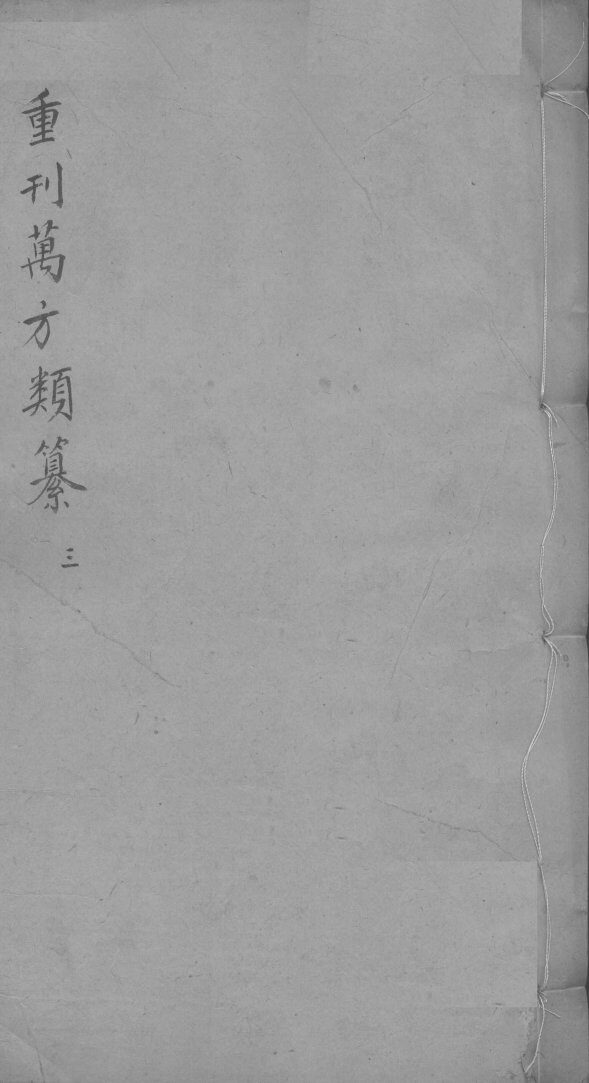 重刊萬方類纂
三